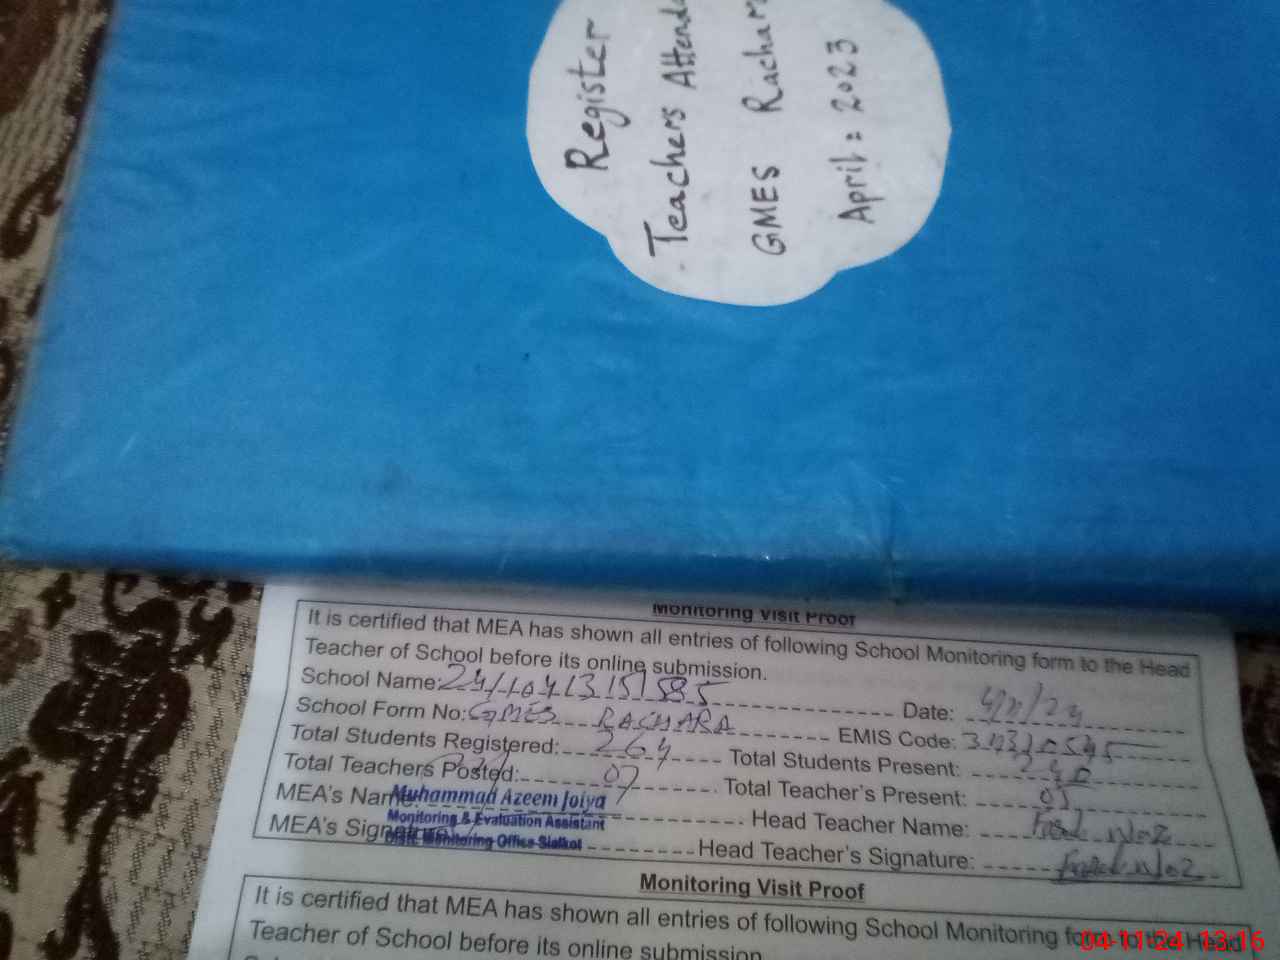 Register
Teachers Attend
GMES Rachar
April : 2023
Monitoring Visit Proof
It is certified that MEA has shown all entries of following School Monitoring form to the Head
Teacher of School before its online submission.
School Name: Date:
School Form No: GMES RACHARA EMIS Code:
Total Students Registered: 264 Total Students Present:
Total Teachers Posted: 07 Total Teacher's Present: 05
MEA's Name: Muhammad Azeem Joiya Head Teacher Name:
Monitoring & Evaluation Assistant
MEA's Signature Distt. Monitoring Office Sialkot Head Teacher's Signature:
Monitoring Visit Proof
It is certified that MEA has shown all entries of following School Monitoring form to the Head
Teacher of School before its online submission
04-11-24 13:16